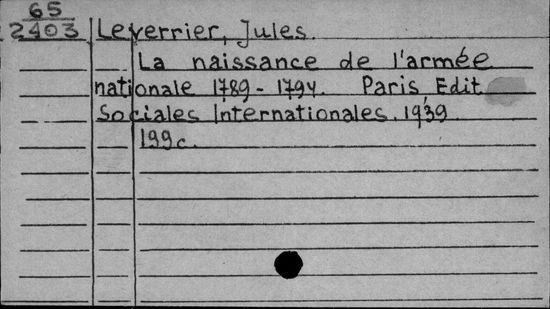 65
2403
Leverrier, Jules.
La naissance de l'armée
nationale 1789-1794. Paris, Edit.
Sociales Internationales, 1939
199c.